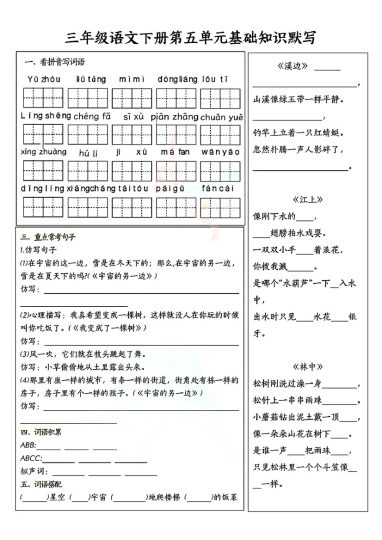 三年级语文下册第五单元基础知识默写
一、看拼音写词语
Yǔ zhòu liú tǎng mì mì dòng liáng lóu tī
Líng shēng chéng fǎ sī xù piān zhāng chuān yuè
xíng zhuàng hú li jì xù má fan wǎn yào
dīng líng xiǎng cháng tái tóu pái gǔ fàn cài
三、重点常考句子
1.仿写句子
(1)在宇宙的这一边，雪是在冬天下的；那么,在宇宙的另一边，
雪是在夏天下的吗?(《宇宙的另一边》)
仿写：
(2)心理描写：我真希望变成一棵树，这样就没人在你玩的时候
叫你吃饭了。(《我变成了一棵树》)
仿写：
(3)风一吹，它们就在枝头跳起了舞。
仿写：小草偷偷地从土里露出头来。
(4)那里有座一样的城市，有条一样的街道，街角处有栋一样的
房子，房子里有一个一样的孩子。(《宇宙的另一边》)
仿写：
四、词语积累
ABB:
ABCC:
拟声词：
五、词语搭配
(____)星空 (____)宇宙 (______)地爬楼梯 (_____)的饭菜
《溪边》 _____
_________________，
山溪像绿玉带一样平静。
_________________，
钓竿上立着一只红蜻蜓。
忽然扑腾一声人影碎了，
_________________。
《江上》
像刚下水的____，
____翅膀拍水戏耍。
一双双小手____着浪花，
你拨我溅______。
是哪个"水葫芦"一下__入水
中，
出水时只见____水花____银
牙。
《林中》
松树刚洗过澡一身______，
松针上一串串雨珠______。
小蘑菇钻出泥土戴一顶____，
像一朵朵山花在树下____。
是谁一声____把雨珠____，
只见松林里一个个斗笠像__
__一样。